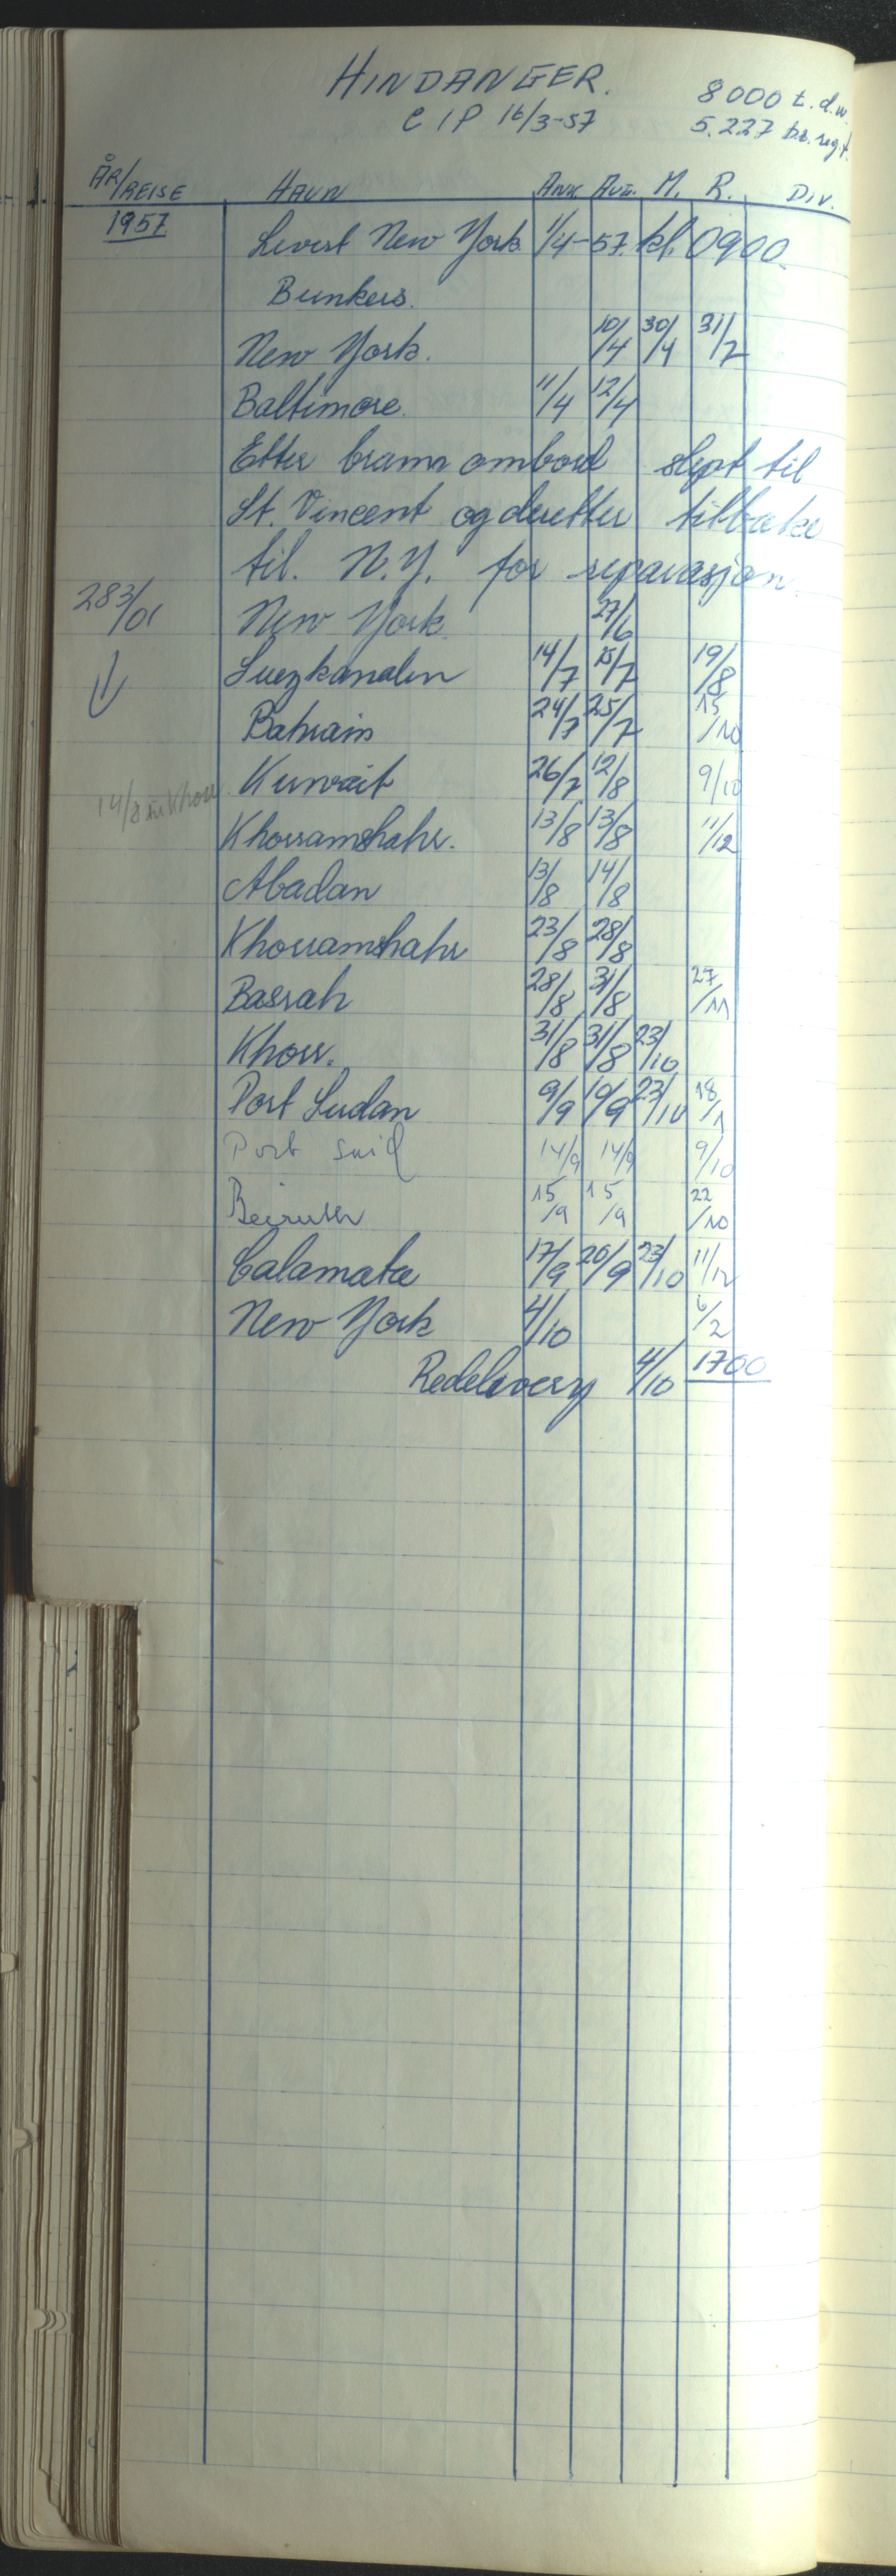 HINDANGER. 8000 t. d.w.
C/P 16/3-57 5.227 br. reg.t.
ÅR/REISE HAVN ANK. AVG. M. R. DIV.
1957 Levert New York 1/4-57. kl. 0900.
Bunkers.
New York. 10/4 30/4 31/7
Baltimore. 11/4 12/4
Etter brann ombord slept til
St. Vincent og deretter tilbake
til. N.Y. for reparasjon.
283/01 New York 27/6
Suezkanalen 14/7 15/7 19/8
Bahrain 24/7 25/7 15/10
Kuwait 26/7 12/8 9/10
14/8 Khorr
Khorramshahr. 13/8 13/8 11/12
Abadan 13/8 14/8
Khorramshahr 23/8 28/8
Basrah 28/8 31/8 27/11
Khorr. 31/8 31/8 23/10
Port Sudan 9/9 10/9 23/10 18/1
Port Said 14/9 14/9 9/10
Beiruth 15/9 15/9 22/10
Calamata 17/9 20/9 23/10 11/12
New York 4/10 6/2
Redelivery 4/10 1700